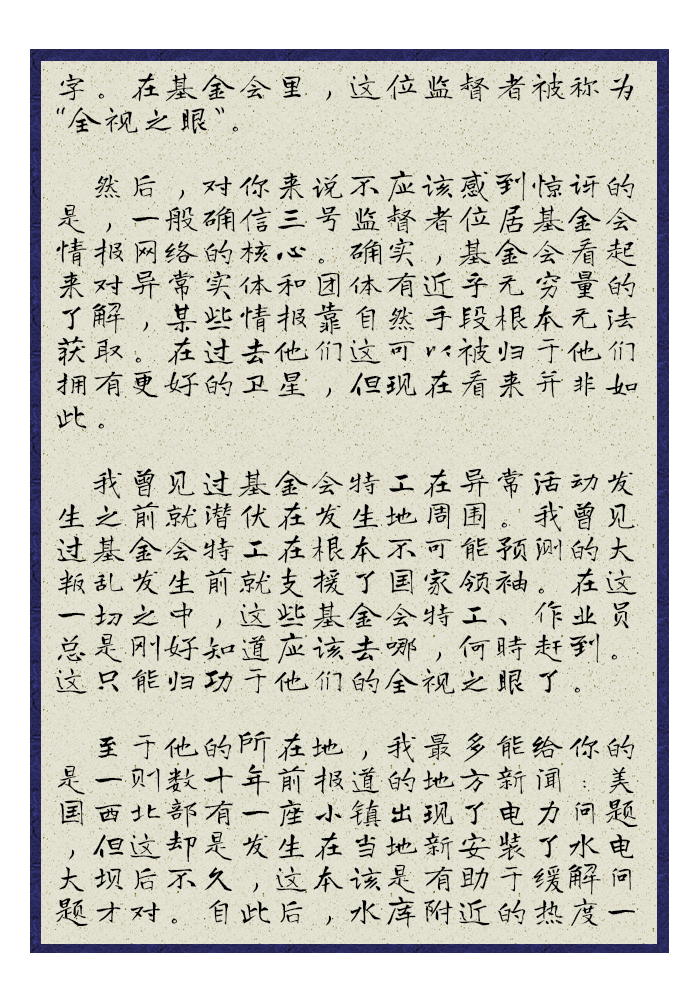 字。在基金会里，这位监督者被称为
“全视之眼”。
然后，对你来说不应该感到惊讶的
是，一般确信三号监督者位居基金会
情报网络的核心。确实，基金会看起
来对异常实体和团体有近乎无穷量的
了解，某些情报靠自然手段根本无法
获取。在过去他们这可以被归于他们
拥有更好的卫星，但现在看来并非如
此。
我曾见过基金会特工在异常活动发
生之前就潜伏在发生地周围。我曾见
过基金会特工在根本不可能预测的大
叛乱发生前就支援了国家领袖。在这
一切之中，这些基金会特工、作业员
总是刚好知道应该去哪，何時赶到。
这只能归功于他们的全视之眼了。
至于他的所在地，我最多能给你的
是一则数十年前报道的地方新闻：美
国西北部有一座小镇出现了电力问题
，但这却是发生在当地新安装了水电
大坝后不久，这本该是有助于缓解问
题才对。自此后，水库附近的热度一